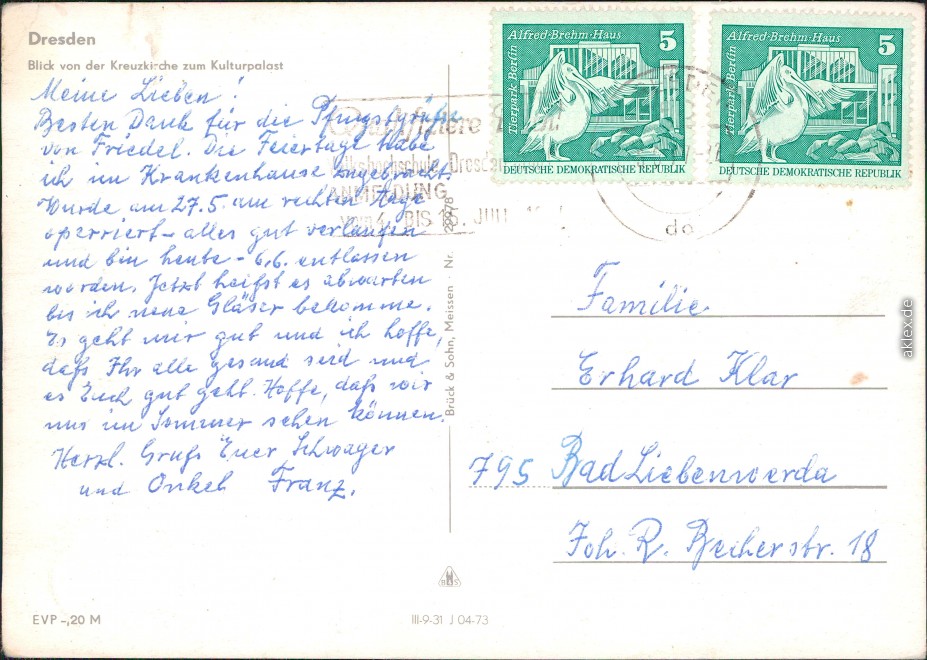 Dresden
Blick von der Kreuzkirche zum Kulturpalast
Meine Lieben!
Besten Dank für die Pfingstgrüße
von Friedel. Die Feiertage habe
ich im Krankenhause zugebracht.
Wurde am 27.5. am rechten Auge
operriert - alles gut verlaufen
und bin heute - 6.6. entlassen
worden. Jetzt heißt es abwarten
bis ich neue Gläser bekomme.
Es geht mir gut und ich hoffe,
daß Ihr alle gesund seid und
es Euch gut geht. Hoffe, daß wir
uns im Sommer sehen können.
Herzl. Gruß Euer Schwager
und Onkel Franz.
EVP -,20 M
Brück & Sohn, Meissen · Nr.
B&S
III-9-31 J 04-73
Volkshochschule Dresden
ANMELDUNG
BIS 15. JULI
Tierpark Berlin
Alfred-Brehm-Haus
5
DEUTSCHE DEMOKRATISCHE REPUBLIK
Tierpark Berlin
Alfred-Brehm-Haus
5
DEUTSCHE DEMOKRATISCHE REPUBLIK
do
Familie
Erhard Klar
795 Bad Liebenwerda
Joh. R. Becherstr. 18
aklex.de